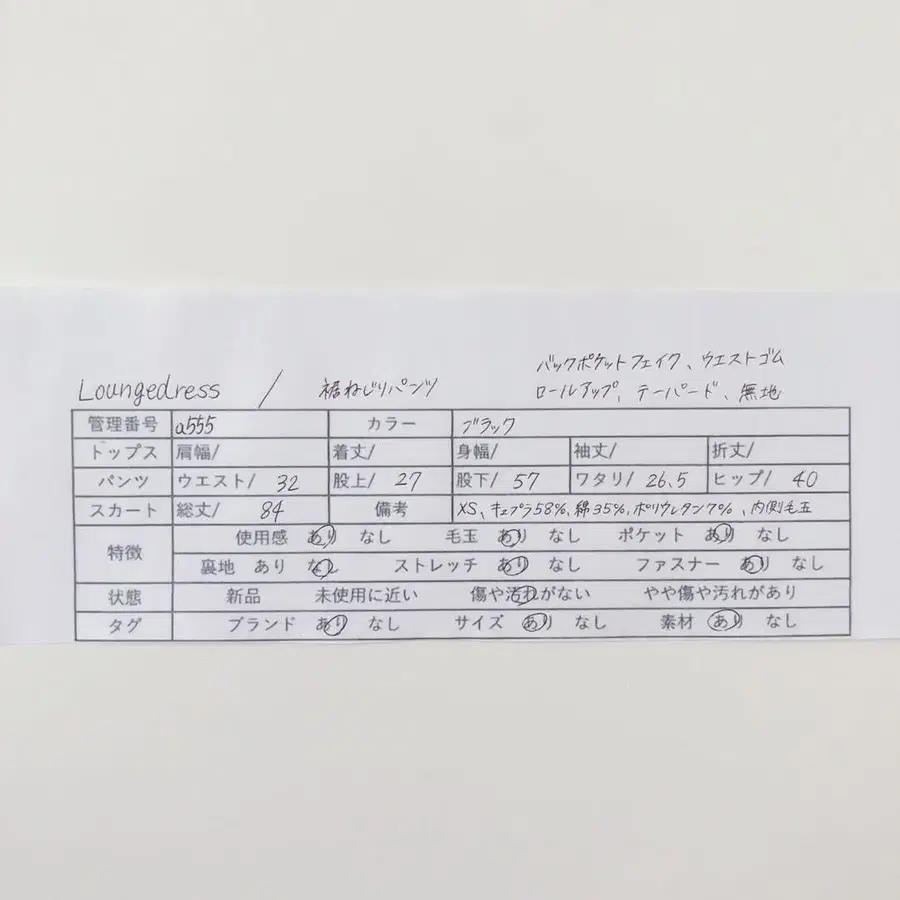 バックポケットフェイク、ウエストゴム
Loungedress / 裾ねじりパンツ ロールアップ、テーパード、無地
管理番号 a555 カラー ブラック
トップス 肩幅/ 着丈/ 身幅/ 袖丈/ 裄丈/
パンツ ウエスト/ 32 股上/ 27 股下/ 57 ワタリ/ 26.5 ヒップ/ 40
スカート 総丈/ 84 備考 XS、キュプラ58%、綿35%、ポリウレタン7%、内側毛玉
特徴 使用感 あり なし 毛玉 あり なし ポケット あり なし
裏地 あり なし ストレッチ あり なし ファスナー あり なし
状態 新品 未使用に近い 傷や汚れがない やや傷や汚れがあり
タグ ブランド あり なし サイズ あり なし 素材 あり なし